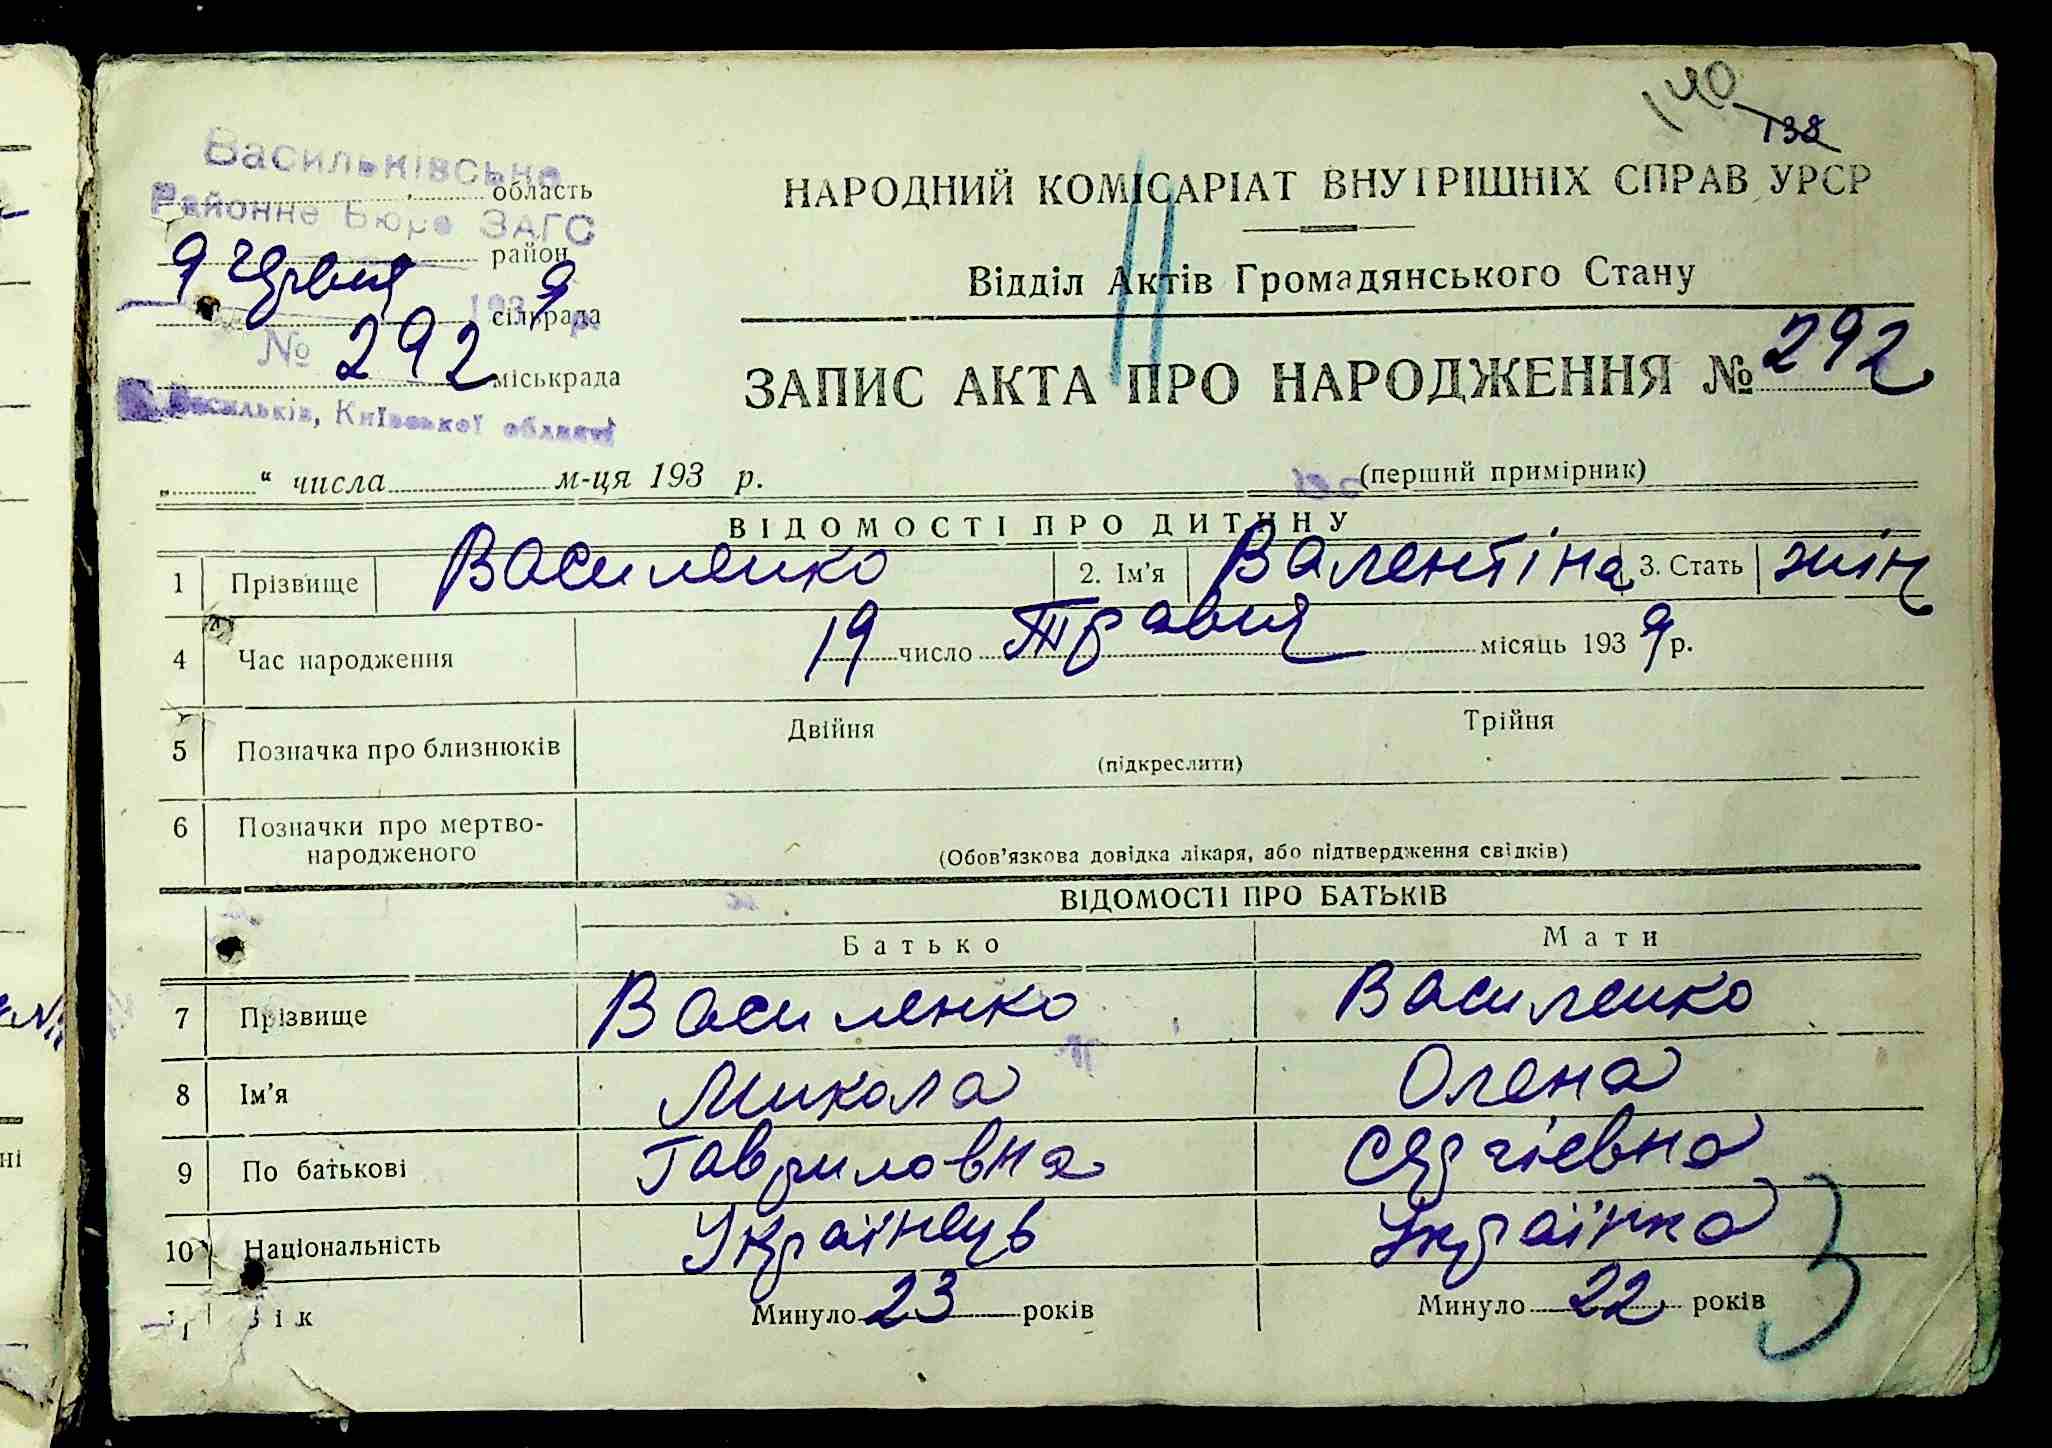 140
138
Васильківське
область
Районне Бюро ЗАГС
район
9 червня 1939 р.
сільрада
№ 292
міськрада
м. Васильків, Київської області
НАРОДНИЙ КОМІСАРІАТ ВНУТРІШНІХ СПРАВ УРСР
Відділ Актів Громадянського Стану
ЗАПИС АКТА ПРО НАРОДЖЕННЯ № 292
„ “ числа м-ця 193 р.
(перший примірник)
ВІДОМОСТІ ПРО ДИТИНУ
1 Прізвище Василенко 2. Ім'я Валентіна 3. Стать жін
4 Час народження 19 число Травня місяць 1939 р.
5 Позначка про близнюків Двійня Трійня
(підкреслити)
6 Позначки про мертво-
народженого
(Обов'язкова довідка лікаря, або підтвердження свідків)
ВІДОМОСТІ ПРО БАТЬКІВ
Батько Мати
7 Прізвище Василенко Василенко
8 Ім'я Микола Олена
9 По батькові Гавриловна Сергієвна
10 Національність Українець Українка
11 Вік Минуло 23 років Минуло 22 років
3